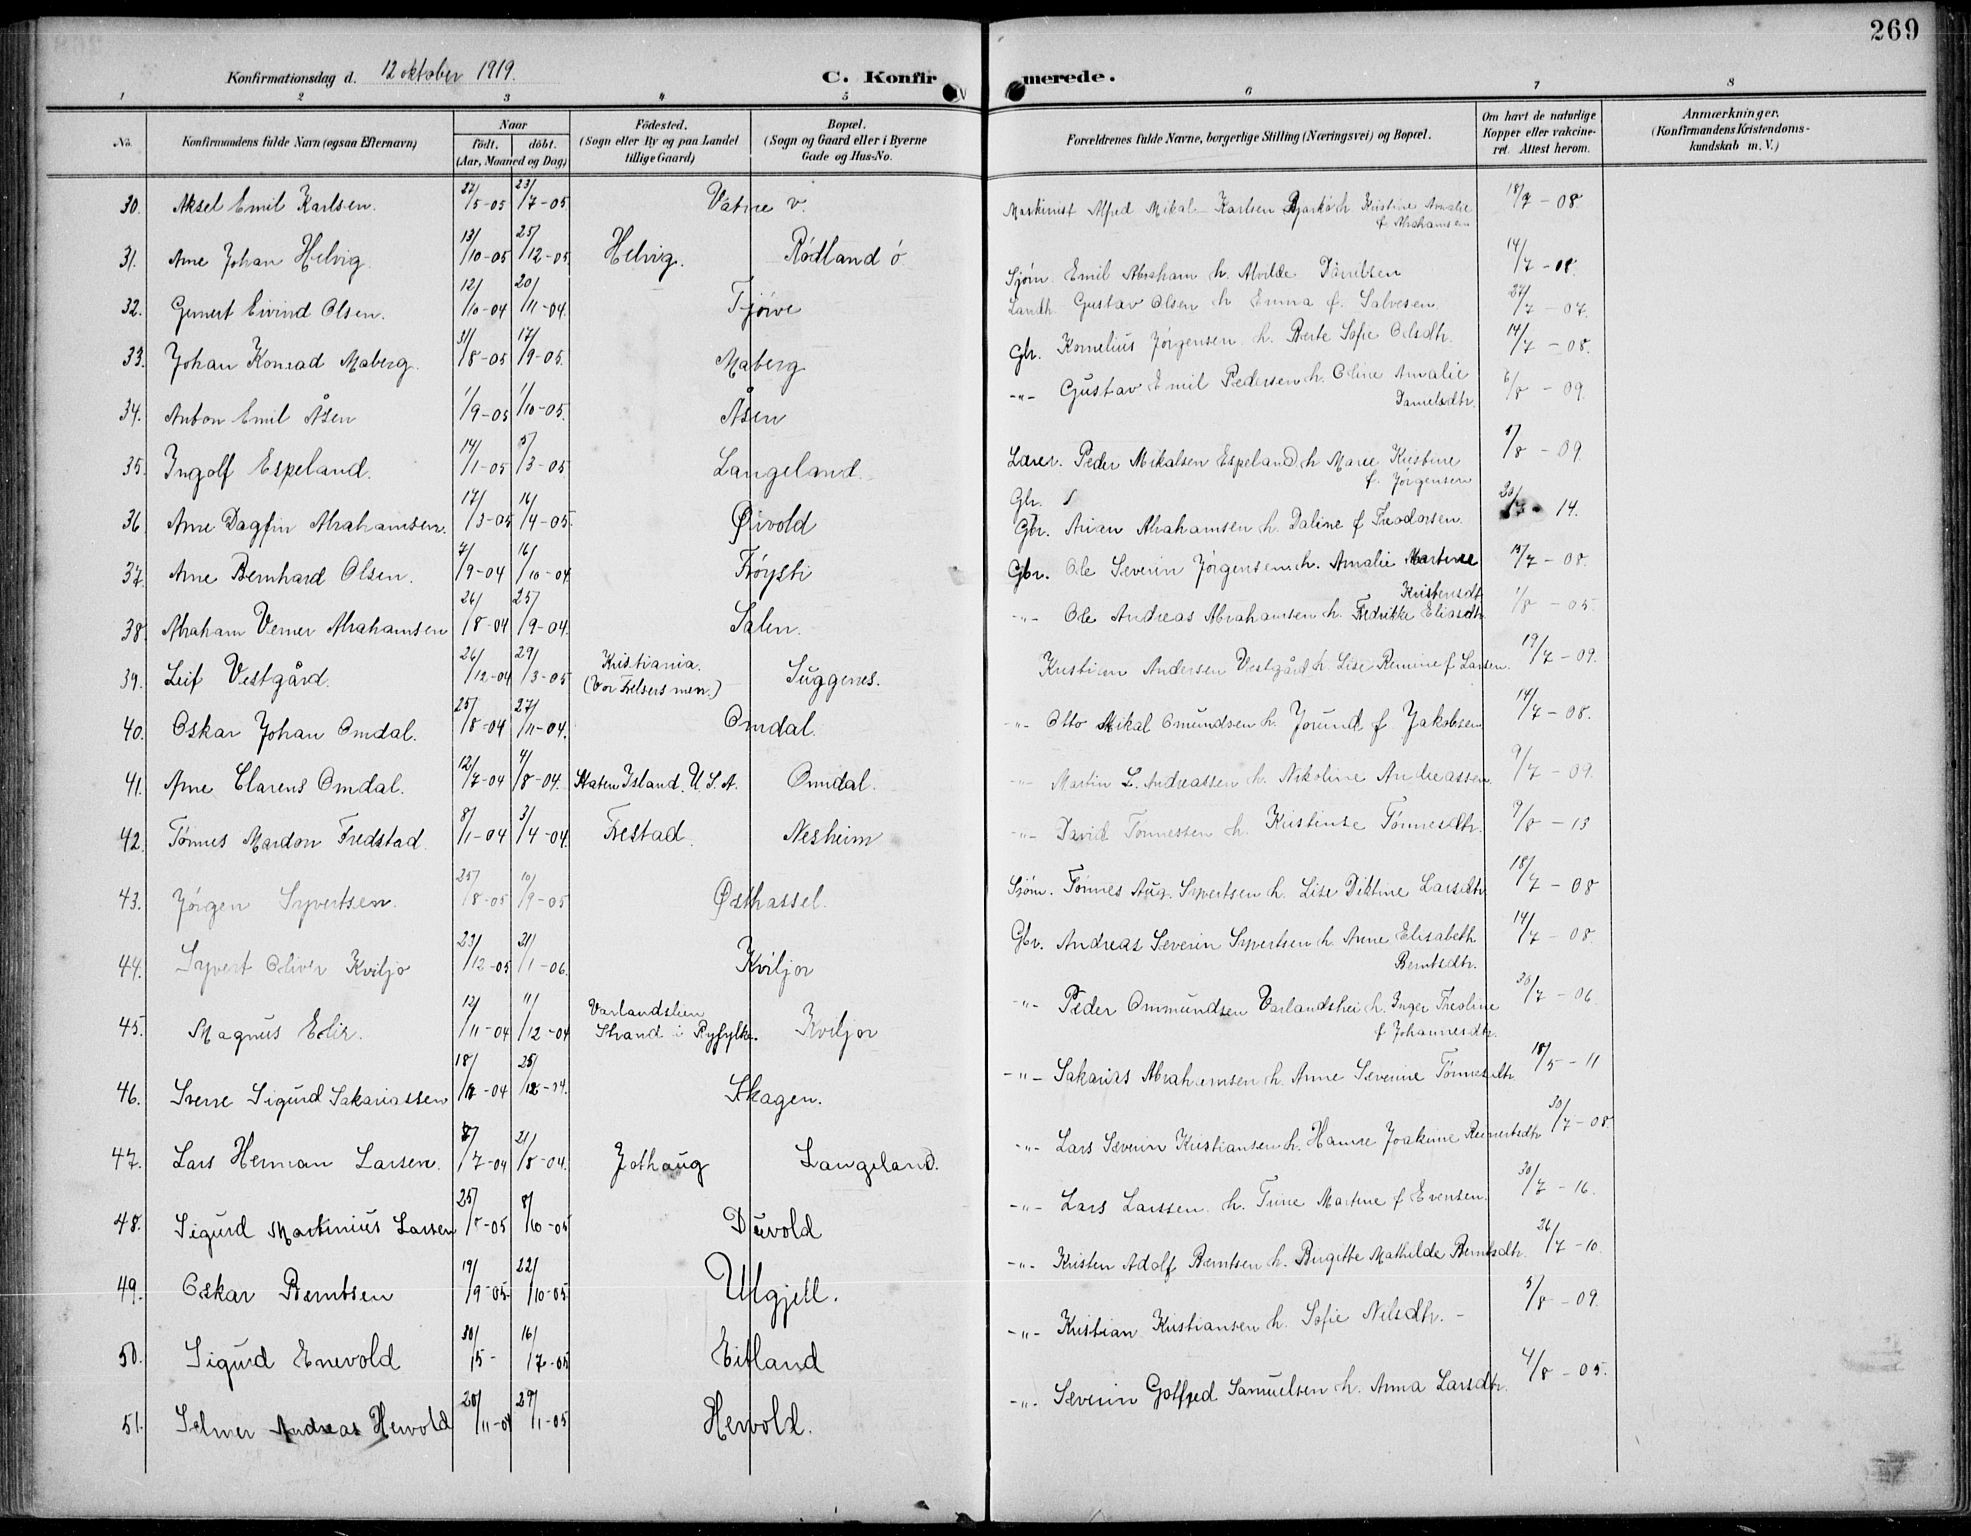 269
Konfirmationsdag d. 12 oktober 1919. C. Konfirmerede.
1 2 3 4 5 6 7 8
No. Konfirmandens fulde Navn (ogsaa Efternavn) Naar født. døbt. (Aar, Maaned og Dag) Fødested. (Sogn eller By og paa Landet tillige Gaard) Bopæl. (Sogn og Gaard eller i Byerne Gade og Hus-No. Forældrenes fulde Navne, borgerlige Stilling (Næringsvei) og Bopæl. Om havt de naturlige Kopper eller vakcineret. Attest herom. Anmærkninger. (Konfirmandens Kristendomskundskab m. V.)
30. Aksel Emil Karlsen. 27/5-05 23/7-05 Vatne v. Maskinist Alfred Mikal Karlsen h. Kristine Amalie f Abrahamsen 18/7-08
31. Arne Johan Helvig 13/10-05 25/12-05 Helvig. Rødland ø Sjøm. Emil Abraham h. Alvilde Danielsen 14/7-08.
32. Gunert Eivind Olsen. 12/10-04 20/11-04. Tjørve Landh. Gustav Olsen h Emma f. Salvesen 27/7-07.
33. Johan Konrad Maberg. 31/8-05 17/9-05. Maberg Gbr. Kornelius Jørgensen h. Berte Sofie Olsdtr. 14/7-08.
34. Anton Emil Åsen 1/9-05 1/10-05. Åsen -"- Gustav Emil Pedersen h. Oline Amalie Danielsdtr. 6/8-09.
35. Ingolf Espeland. 14/1-05 5/3-05 Langeland. Lærer. Peder Mikalsen Espeland h Maree Kristine f. Jørgensen 5/8-09
Gbr.
36 Arne Dagfin Abrahamsen. 17/3-05 16/4-05. Øivold Gbr. Arian Abrahamsen h. Daline f Theodorsen. 14.
37. Arne Bernhard Olsen. 7/9-04 16/10-04 Frøysti Gbr. Ole Severin Jørgensen h. Amalie Martinee Kristensdtr 15/7-08.
38. Abraham Verner Abrahamsen 26/8-04 25/9-04. Salen. -"- Ole Andreas Abrahamsen h. Fredrikke Eliasdtr. 1/8-05.
39. Leif Vestgård. 26/12-04 29/3-05 Kristiania. (Vor Frelsers men.) Suggenes. Kristian Andersen Vestgård h. Lise Remine f Larsen. 19/7-09.
40. Oskar Johan Omdal. 25/8-04 27/11-04. Omdal. -"- Otto Mikal Omundsen h. Jorund f Jakobsen 14/7-08.
41. Arne Clarens Omdal. 12/7-04 4/8-04. Staten Island. U. S. A. Omdal. -"- Martin L. Andreassen h. Nikoline Andreassen. 9/7-09.
42. Tønnes Mardon Fredstad. 8/1-04 3/4-04. Frestad. Nesheim -"- David Tønnessen h. Kristinse Tønnesdtr. 9/8-13
43. Jørgen Syvertsen. 25/8-05 10/9-05 Østhassel. Sjøm. Tønnes Aug. Syvertsen h. Lise Diktine Larsdtr 18/7-08
44. Syvert Oliver Kviljo 23/12-05 21/1-06. Kviljor Gbr. Andreas Severin Syvertsen h. Anne Elisabeth Berntsdtr. 14/7-08.
45. Magnus Edir. 12/11-04 11/12-04 Varlandslien Strand i Ryfylke. Kviljor -"- Peder Ommundsen Varlandshei h. Inger Theoline f Johannesdtr. 20/7-06.
46. Sverre Sigurd Sakariassen 18/11-04 25/12-04. Skagen. -"- Sakarias Abrahamsen h. Anne Severine Tønnesdtr. 18/5-11
47. Lars Herman Larsen. 7/7-04 21/8-04. Jothaug Langeland. -"- Lars Severin Kristiansen h. Hanne Joakime Reinertsdtr 30/7-08
48. Sigurd Martinius Larsen 25/8-05 8/10-05 Duvold -"- Lars Larssen. h. Trine Martine f Evensen. 30/7-16.
49. Oskar Berntsen 19/9-05. 22/10-05. Ulgjell. -"- Kristen Adolf Berntsen h. Birgitte Mathilde Berntsdtr. 26/7-10.
50. Sigurd Enevold 30/5- 16/7-05 Eitland -"- Kristian Kristiansen h. Sofie Nilsdtr. - 5/8-09.
51. Selmer Andreas Hervold 20/11-04 29/1-05 Hervold. -"- Severin Gotfred Samuelsen h. Anna Larsdtr. 4/8-05.